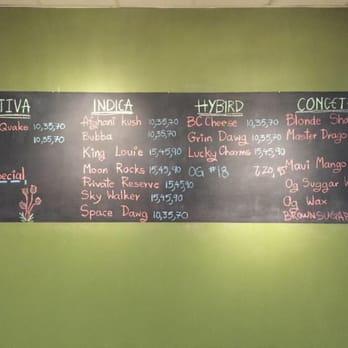 TIVA
Quake 10,35,70
10,35,70
pecial
INDICA
Afghani kush 10,35,70
Bubba 10,35,70
King Louie 15,45,90
Moon Rocks 15,45,90
Private Reserve 15,45,90
Sky Walker 15,45,90
Space Dawg 10,35,70
HYBIRD
BC Cheese 10,35,70
Griin Dawg 10,35,70
Lucky Charms 15,45,90
OG #18
CONCET
Blonde Sha
Master Drago
Maui Mango
Og Suggar W
Og Wax
BROWNSUGAR